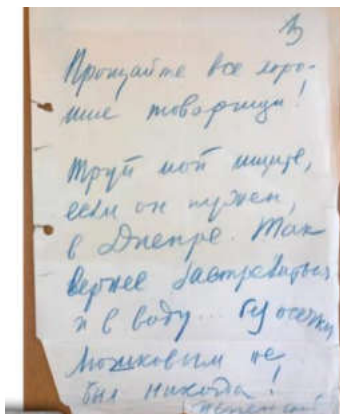 3
Прощайте все хоро-
шие товарищи!
Труп мой ищите,
если он нужен,
в Днепре. Так
вернее застрелиться
и в воду... без осечки
Пожковым не
был никогда!